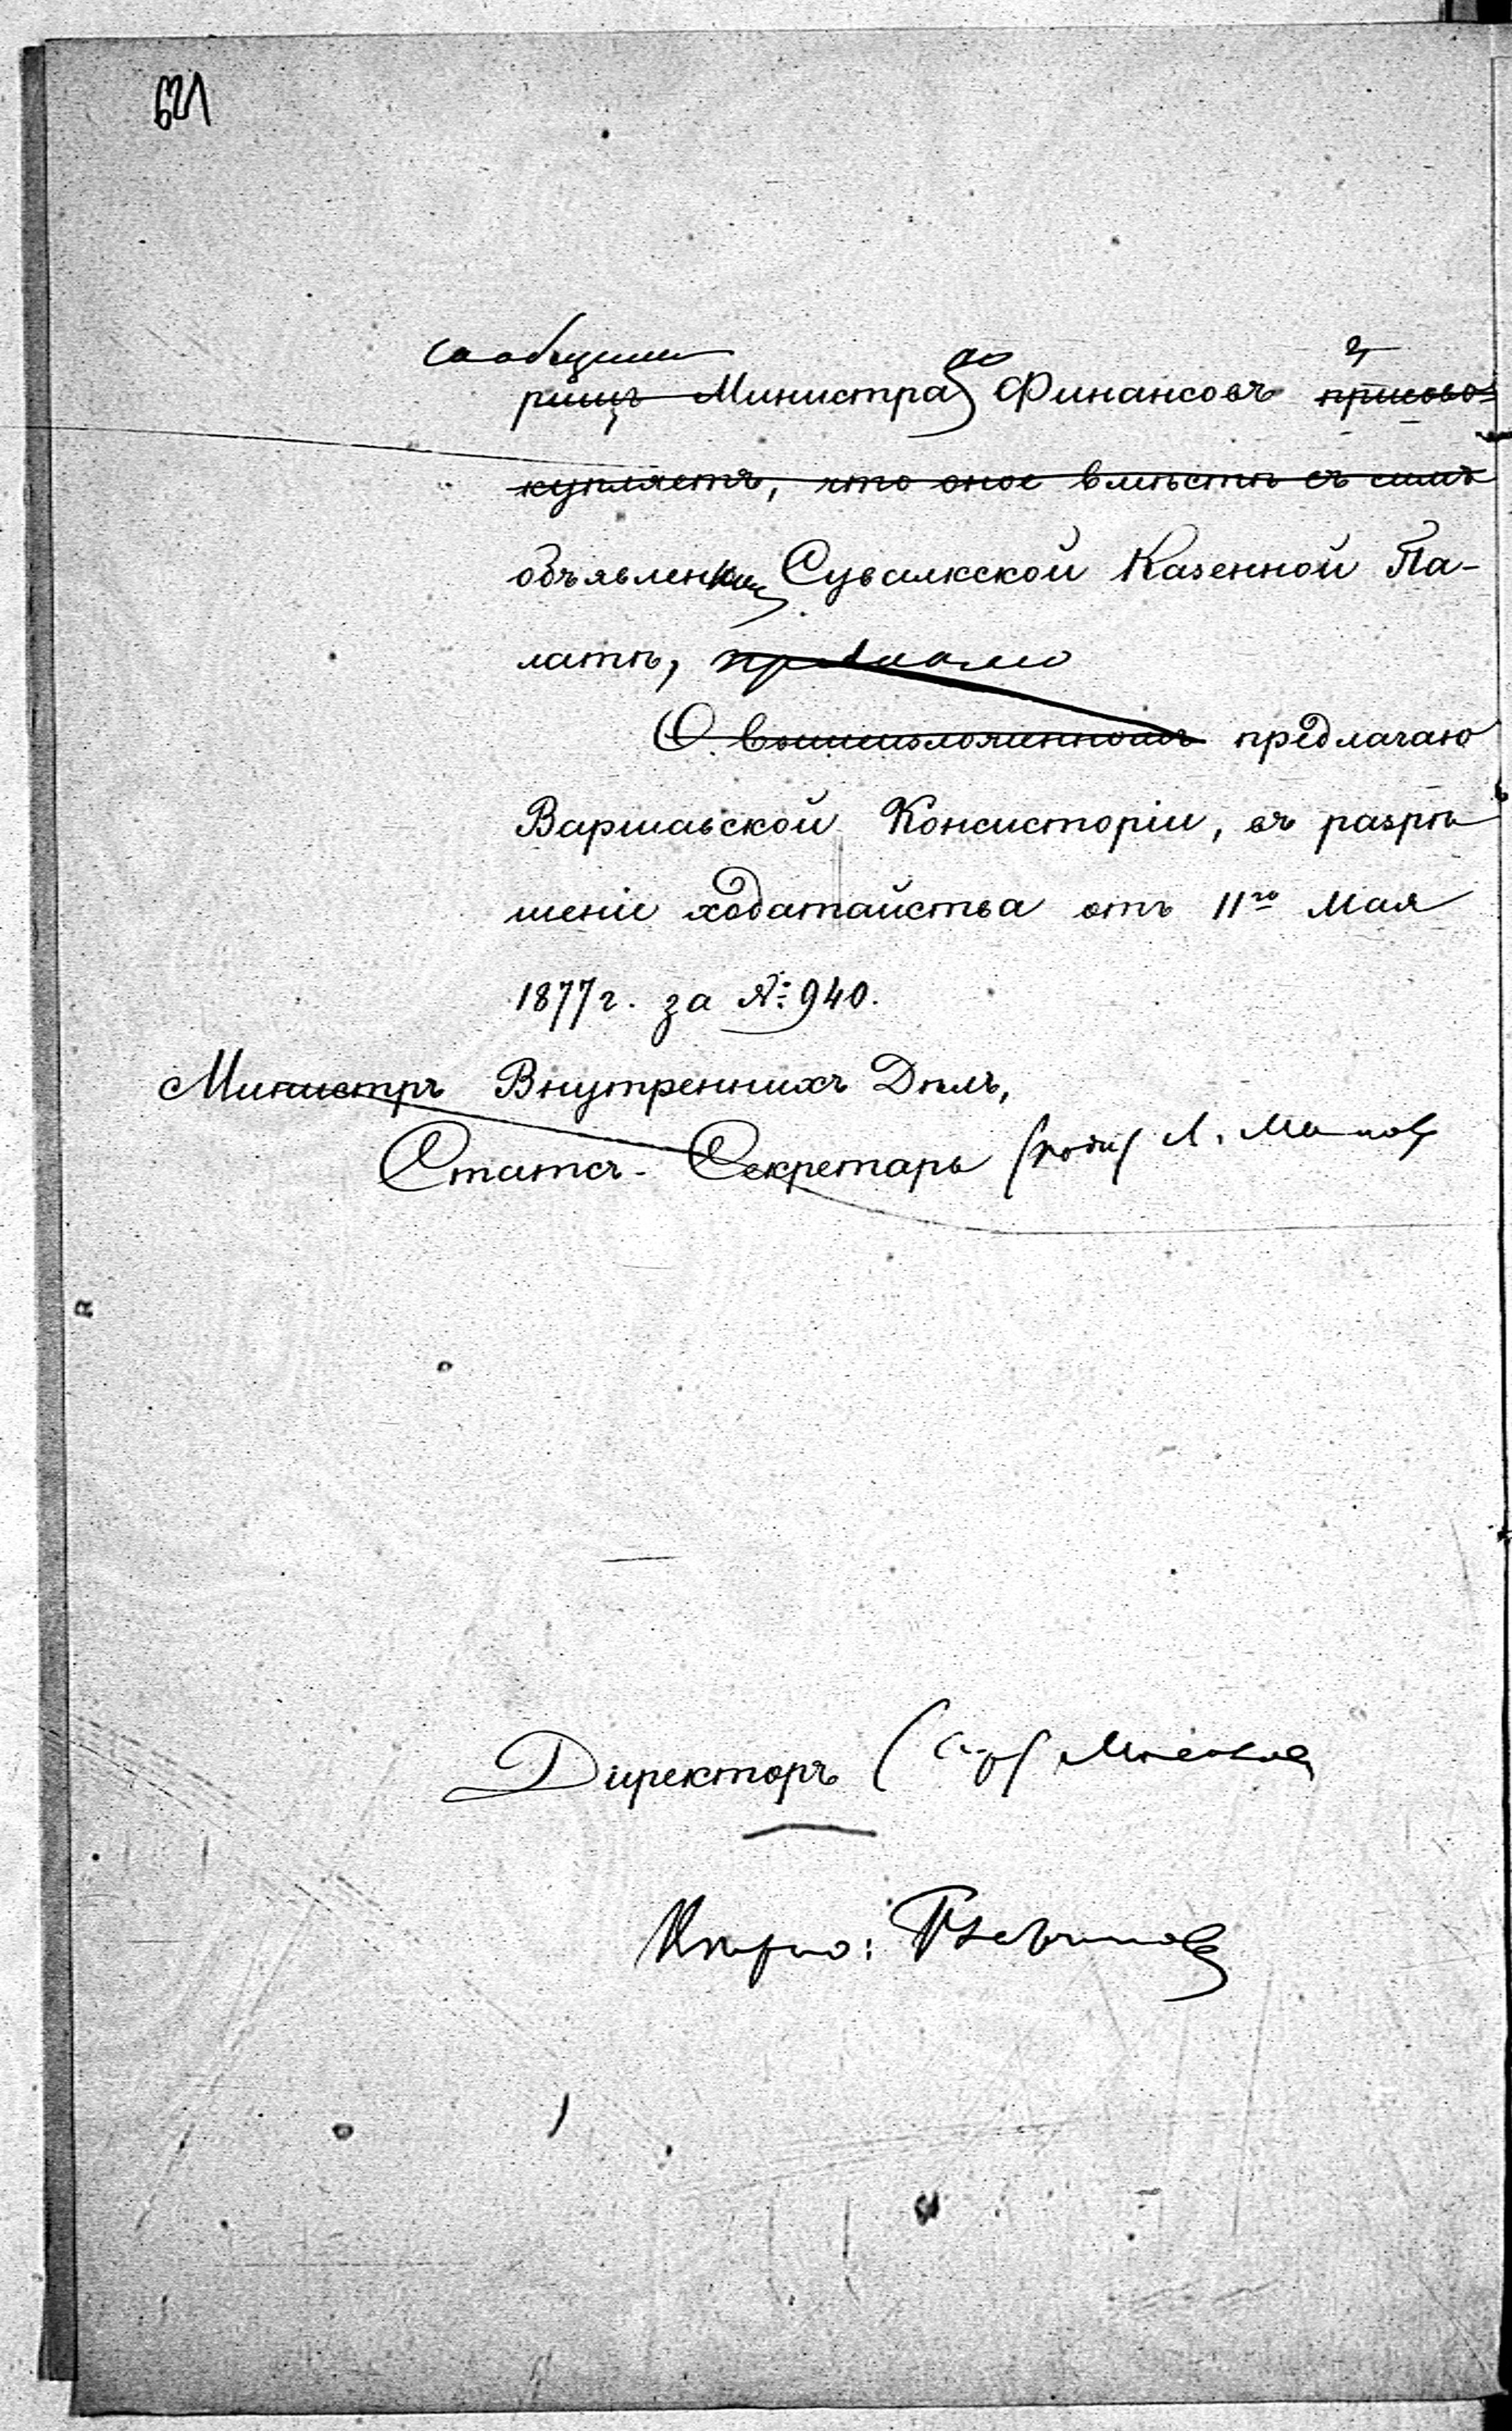 621
сообщенію
рищъ Министра Финансовъ присово-
купляетъ, что оное вмѣстѣ съ симъ
объявлен Сувалкской Казенной Па-
латѣ,
О вышеизложенномъ предлагаю
Варшавской Консисторіи, въ разрѣ
шеніе ходатайства отъ 11го Мая
1877 г. за № 940.
Министръ Внутреннихъ Дѣлъ,
Статсъ-Секретарь (подп) Л. Маковъ
Директоръ (